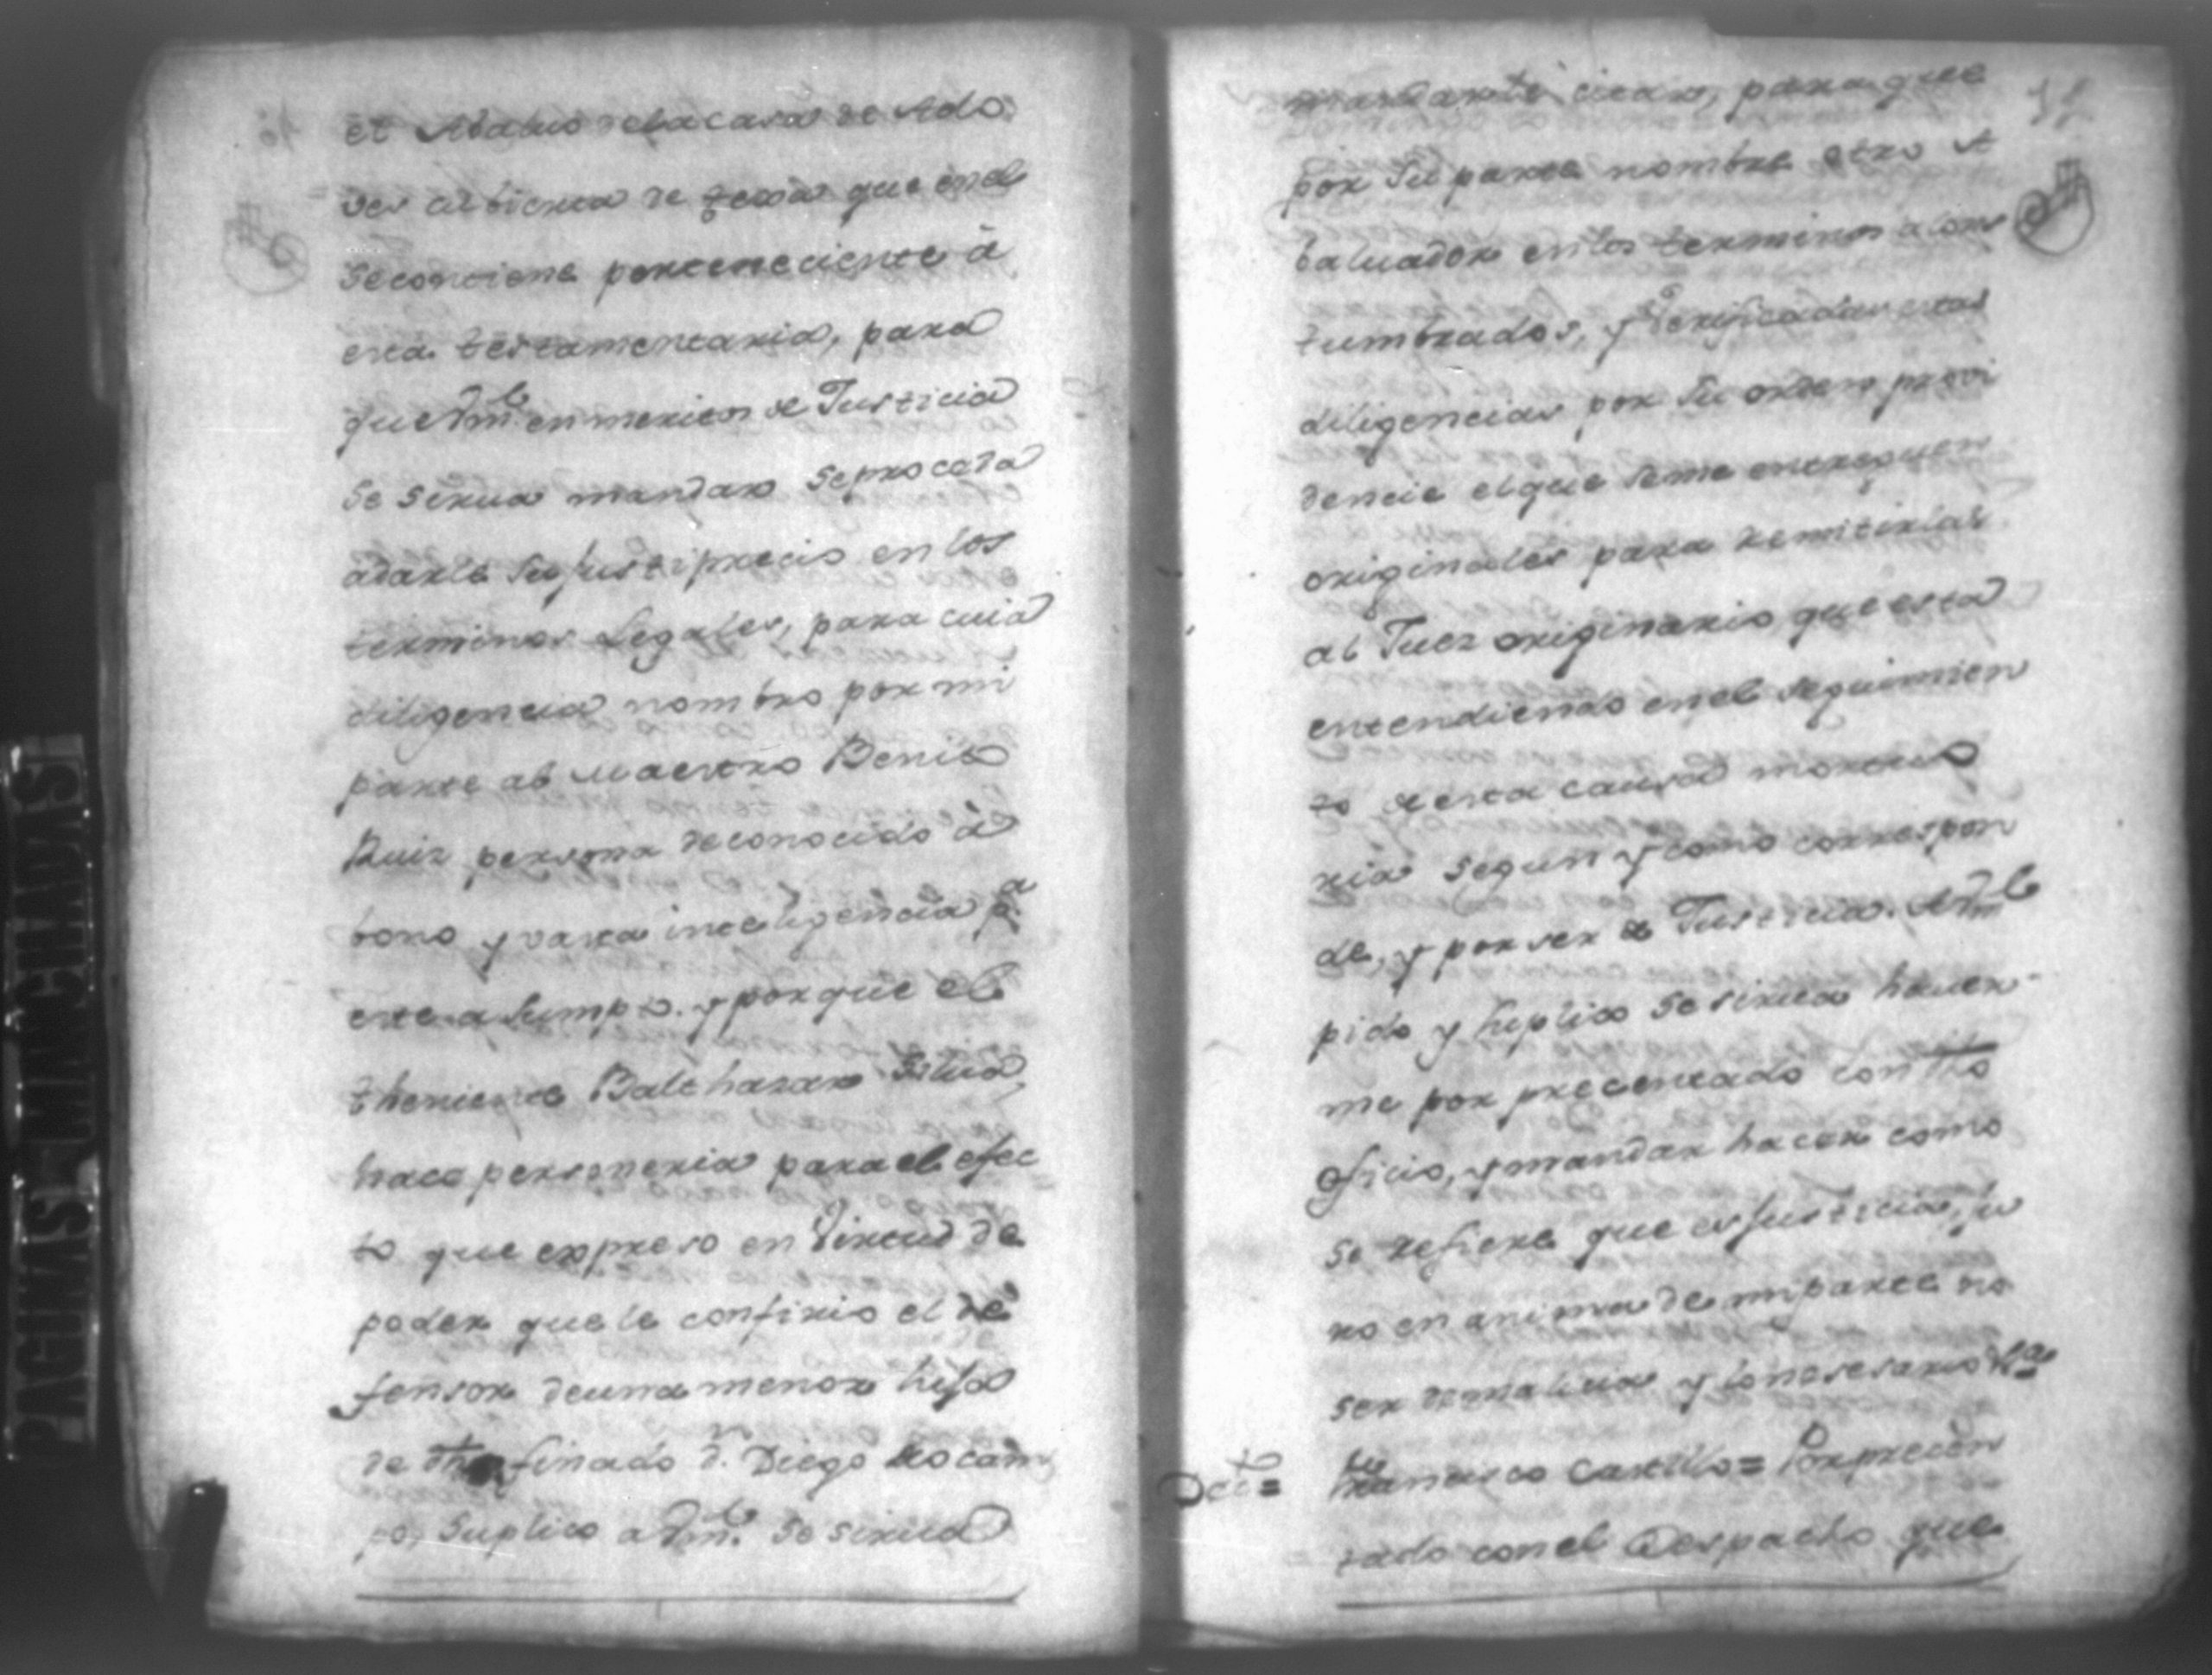 el Abaluo dela casa de Ado
ves cubierta de texa que en el
se contiene perteneciente â
esta testamentaria, para
que Vm.d en meritos de Justicia
se sirua mandar se proceda
adarle su justiprecio en los
terminos Legales, para cuia
diligencia nombro por mi
parte al Maestro Benito
Ruiz persona de conocido â
bono y vasta inteligencia p.a
este asumpto. y porque el
theniente Balthazar Silua,
hace personeria para el efec
to que expreso en Virtud de
poder que le confirio el de
fensor de una menor hija
de dho finado d.n Diego Rocam
po, suplico a Vm.d se sirua
mandarle citar, para que
por su parte nombre otro A
baluador en los terminos acos
tumbrados, y verificadas estas
diligencias por su orden provi
dencie el que se me entreguen
originales para remitirlas
al Juez originario que esta
entendiendo en el seguimien
to de esta causa mortuo
ria segun y como correspon
de, y por ser de Justicia. A Vm.d
pido y suplico se sirua hauer
me por precentado con dho
oficio, y mandar hacer como
se refiere que es justicia, ju
ro en anima de mi parte no
ser de malicia y lo nesesario &a
Francisco Castillo = Por precen
Dec.to =
tado con el Despacho que
PAGINAS MANCHADAS